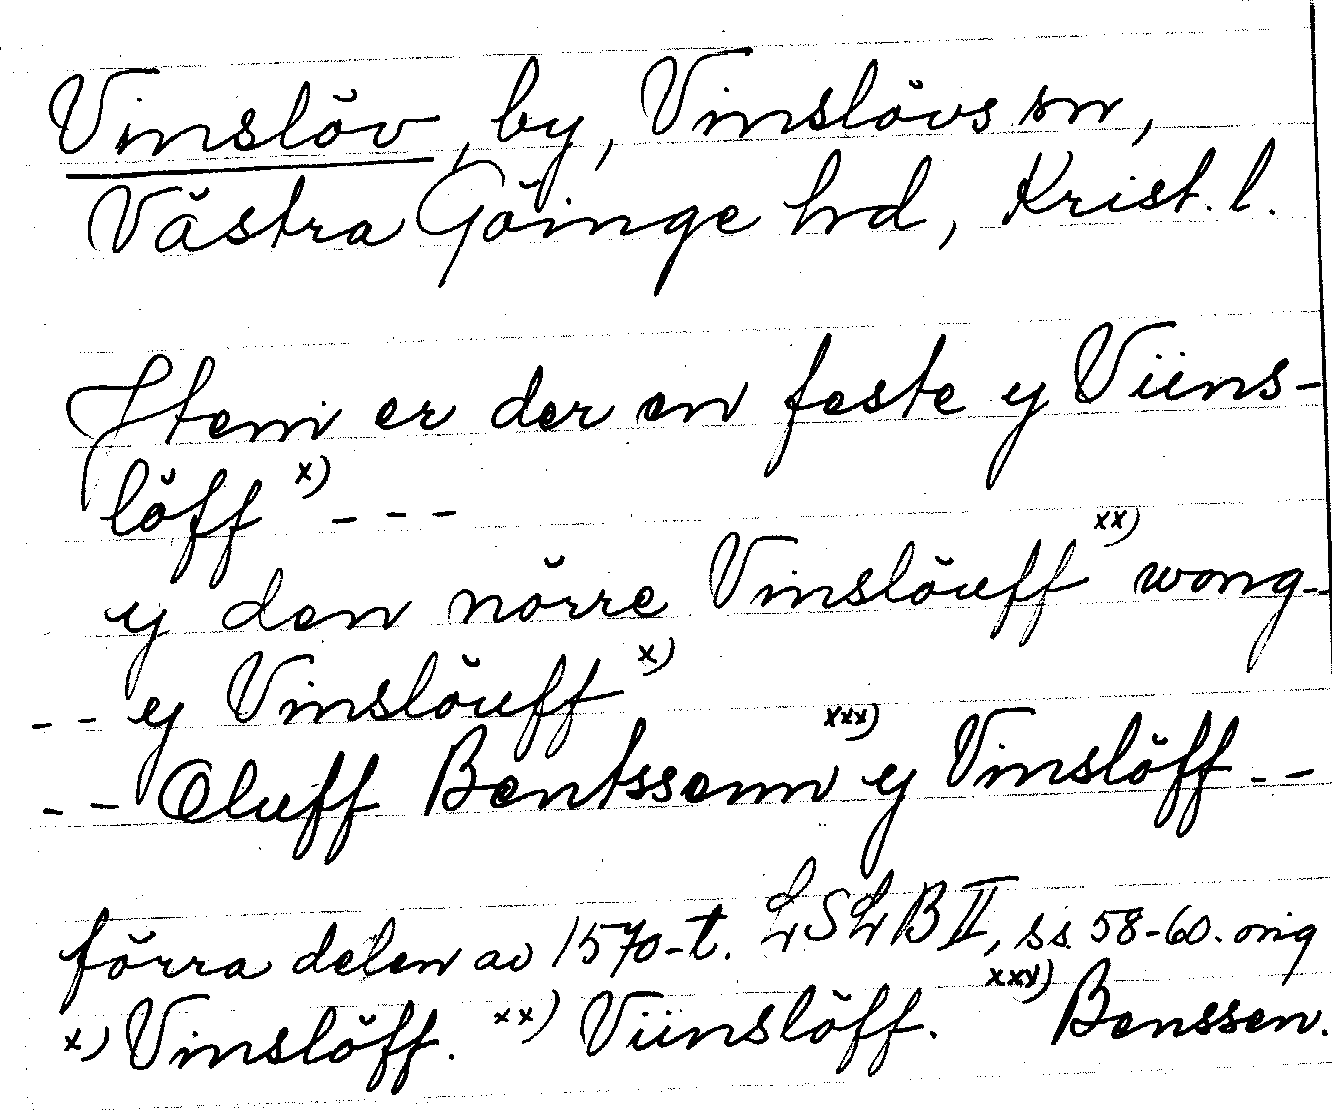 Vinslöv, by, Vinslövs sn,
Västra Göinge hd, Krist. l.
Item er der en feste y Viins-
löff x) - - -
y den nörre Vinslöuff xx) wong -
- - y Vinslöuff x)
- - Oluff Bentssenn xxx) y Vinslöff - -
förra delen av 1570-t. LSLB II, ss 58-60. orig
x) Vinslöff. xx) Viinslöff. xxx) Benssen.